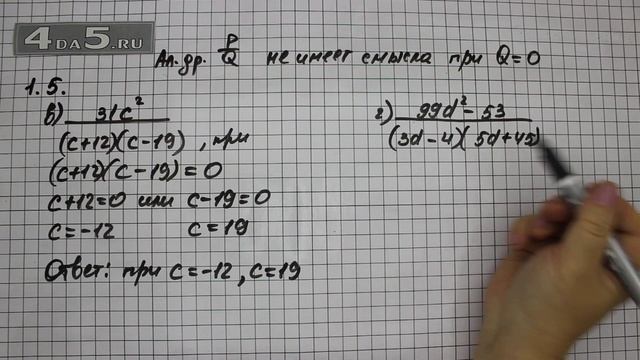 4DA5.RU
Ал. др. P/Q не имеет смысла при Q=0
1.5.
в) 31c²
(c+12)(c-19) , при
(c+12)(c-19)=0
c+12=0 или c-19=0
c=-12 c=19
Ответ: при c=-12, c=19
г) 99d²-53
(3d-4)(5d+45)